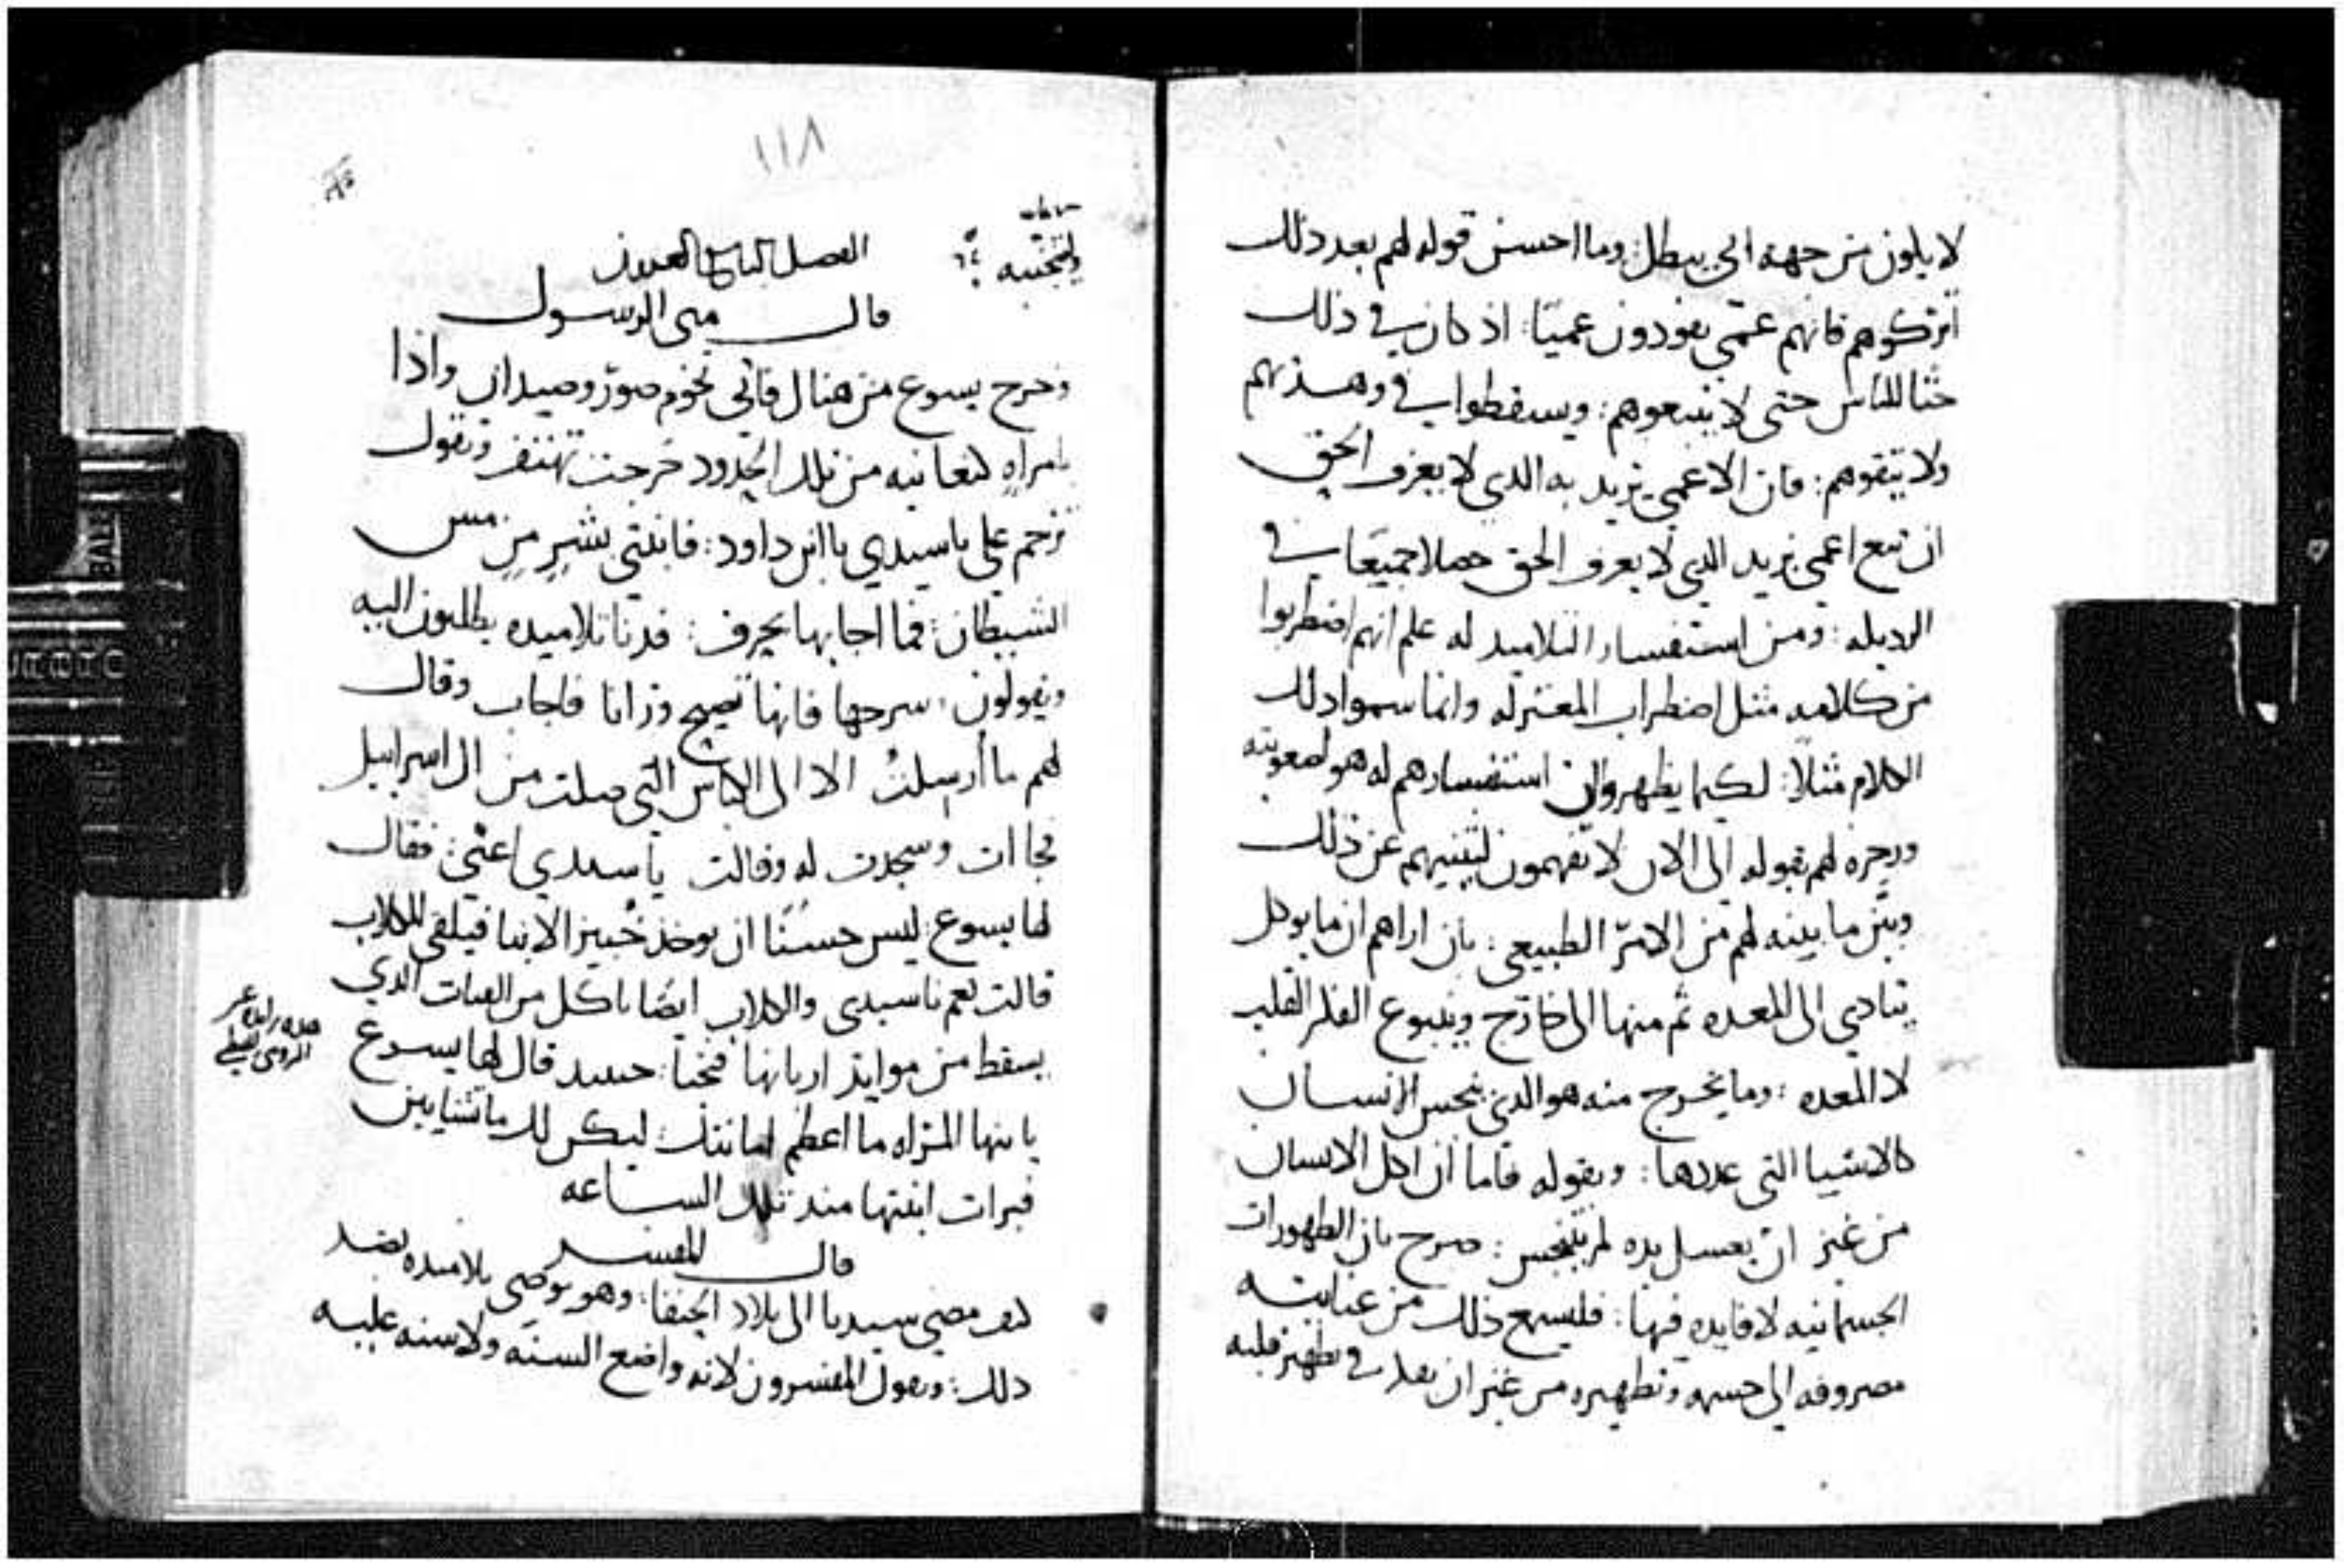 لا يكون من جهة الحي يبطل: وما احسن قوله لهم بعد ذلك
اتركوهم فانهم عمي يقودون عميًا: اذ كان في ذلك
حثا للناس حتى لا يتبعوهم: ويسقطوا في وهذتهم
ولا يتقوهم: فان الاعمى يريد به الدي لا يعرف الحق
ان تبع اعمى يريد الدي لا يعرف الحق حصلا جميعًا في
الرديله: ومن استفسار التلاميد له علم انهم اضطربوا
من كلامه مثل اضطراب المعتزله وانما سموا دلك
الكلام مثلًا: لكيما يظهروا ان استفسارهم له هو لصعوبته
وزجره لهم بقوله الى الان لا تفهمون لينبيهم عن ذلك
وبين ما بينه لهم من الامر الطبيعي: بان اراهم ان ما يوكل
يتادى الى المعده ثم منها الى خارج وينبوع الفكر القلب
لا المعده: وما يخرج منه هو الدي ينجس الانسان
كالاشيا التي عددها: وبقوله فاما ان اكل الانسان
من غير ان يغسل يده لم يتنجس: صرح بان الطهورات
الجسمانيه لا فايده فيها: فليسمع ذلك من عنايته
مصروفه الى جسمه وتطهيره من غير ان يفكر في تطهير قلبه
١١٨
الفصل
قال متى الرسول
وخرج يسوع من هناك فاتى تخوم صور وصيدان واذا
بامراه كنعانيه من تلك الحدود خرجت تهتف وتقول
ترحم علي ياسيدي يا ابن داود: فابنتي بشر من مس
الشيطان: فما اجابها بحرف: فدنا تلاميده يطلبون اليه
ويقولون: سرحها فانها تصيح وزانا فاجاب وقال
لهم ما أرسلتُ الا الى الكباش التي ضلت من ال اسراييل
فجاات وسجدت له وقالت ياسيدي اعني: فقال
لها يسوع: ليس حسنًا ان يوخذ خبز الابنا فيلقى للكلاب
قالت نعم ياسيدي والكلاب ايضًا تاكل من الفتات الدي
يسقط من موايد اربابها فتحيا: حينيد قال لها يسوع
يا ايتها المراه ما اعظم امانتك: ليكن لك ما تشايين
فبرات ابنتها مند تلك الساعه
قال المفسر
كيف مضى سيدنا الى بلاد الحنفا: وهو يوصي تلاميده بضد
دلك: ويقول المفسرون لانه واضع السنه ولا سنه عليه